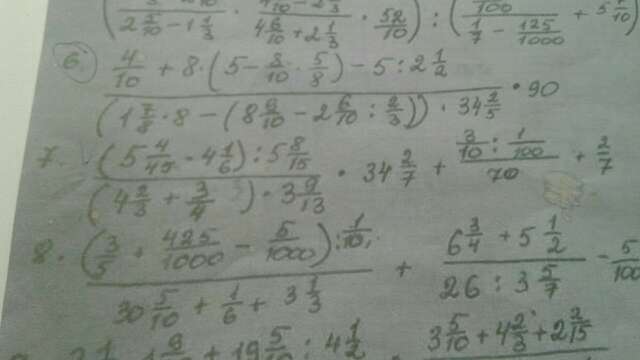 2 5/10 - 1 1/3 · 4 6/10 + 2 1/3 · 52/10) : ( 1/7 - 125/1000 + 5
6. (4/10 + 8 · (5 - 8/10 · 5/8) - 5 : 2 1/2) / ((1 7/8 · 8 - (8 9/10 - 2 6/10 : 2/3)) · 34 2/5) · 90
7. ((5 4/45 · 4 1/6) : 5 8/15) / ((4 2/3 + 3/4) · 3 9/13) · 34 2/7 + (3/10 : 1/100) / 70 + 2/7
8. ((3/5 + 425/1000 - 5/1000) : 1/10) / (30 5/10 + 1/6 + 3 1/3) + (6 3/4 + 5 1/2) / (26 : 3 5/7) - 5/100
+ 19 5/10 : 4 1/2 3 5/10 + 4 2/3 + 2 2/15